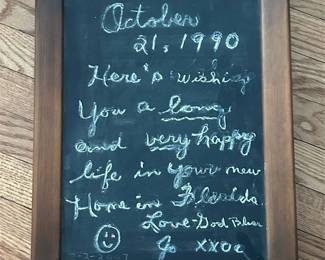 October
21, 1990
Here's wishing
You a long
and very happy
life in your new
Home in Florida.
Love - God Bless
Jo xxoo